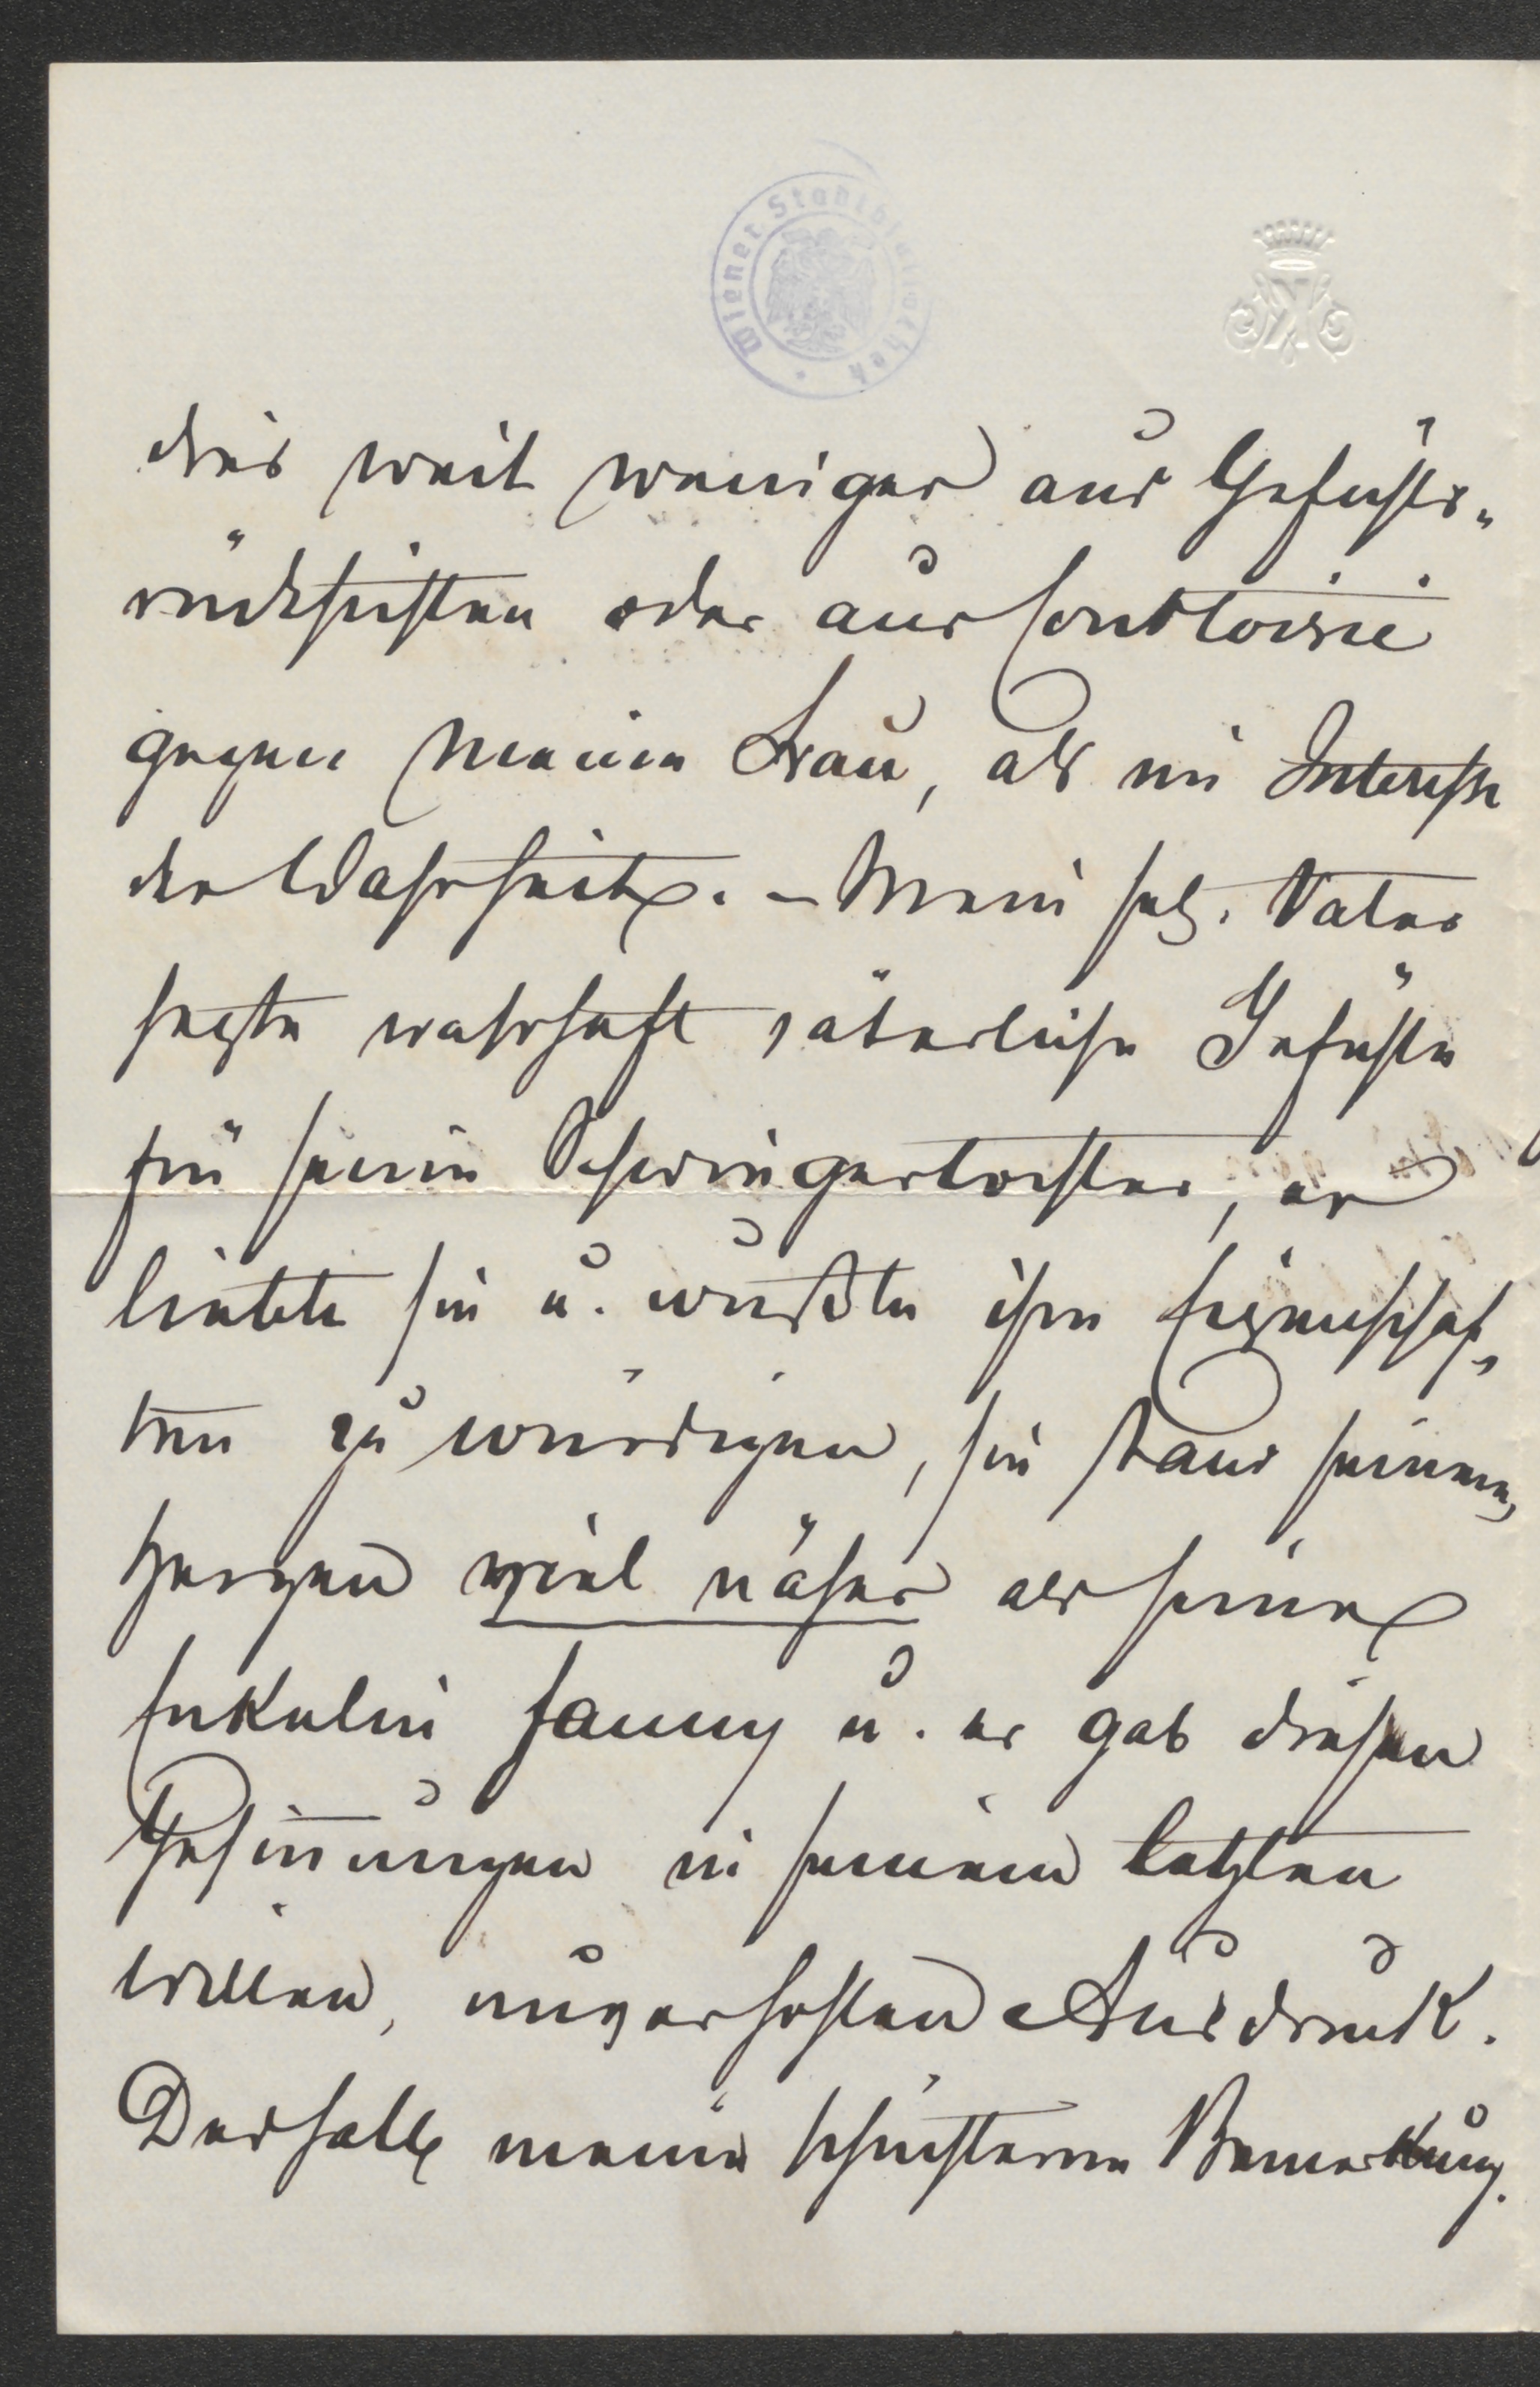 Wiener Stadtbibliothek
dies weit weniger aus Gefühls„
rücksichten oder aus Courtoisie
gegen meine Frau, als im Interesse
der Wahrheit. – Mein sel. Vater
hegte wahrhaft väterliche Gefühle
für seine Schwiegertochter, er
liebte sie u. wußte ihre Eigenschaf„
ten zu würdigen, sie stand seinem
Herzen viel näher als seine
Enkelin Fanny u. er gab diesen
Gesinnungen in seinem letzten
Willen, unverholen Ausdruck.
Deshalb meine schüchterne Bemerkung.